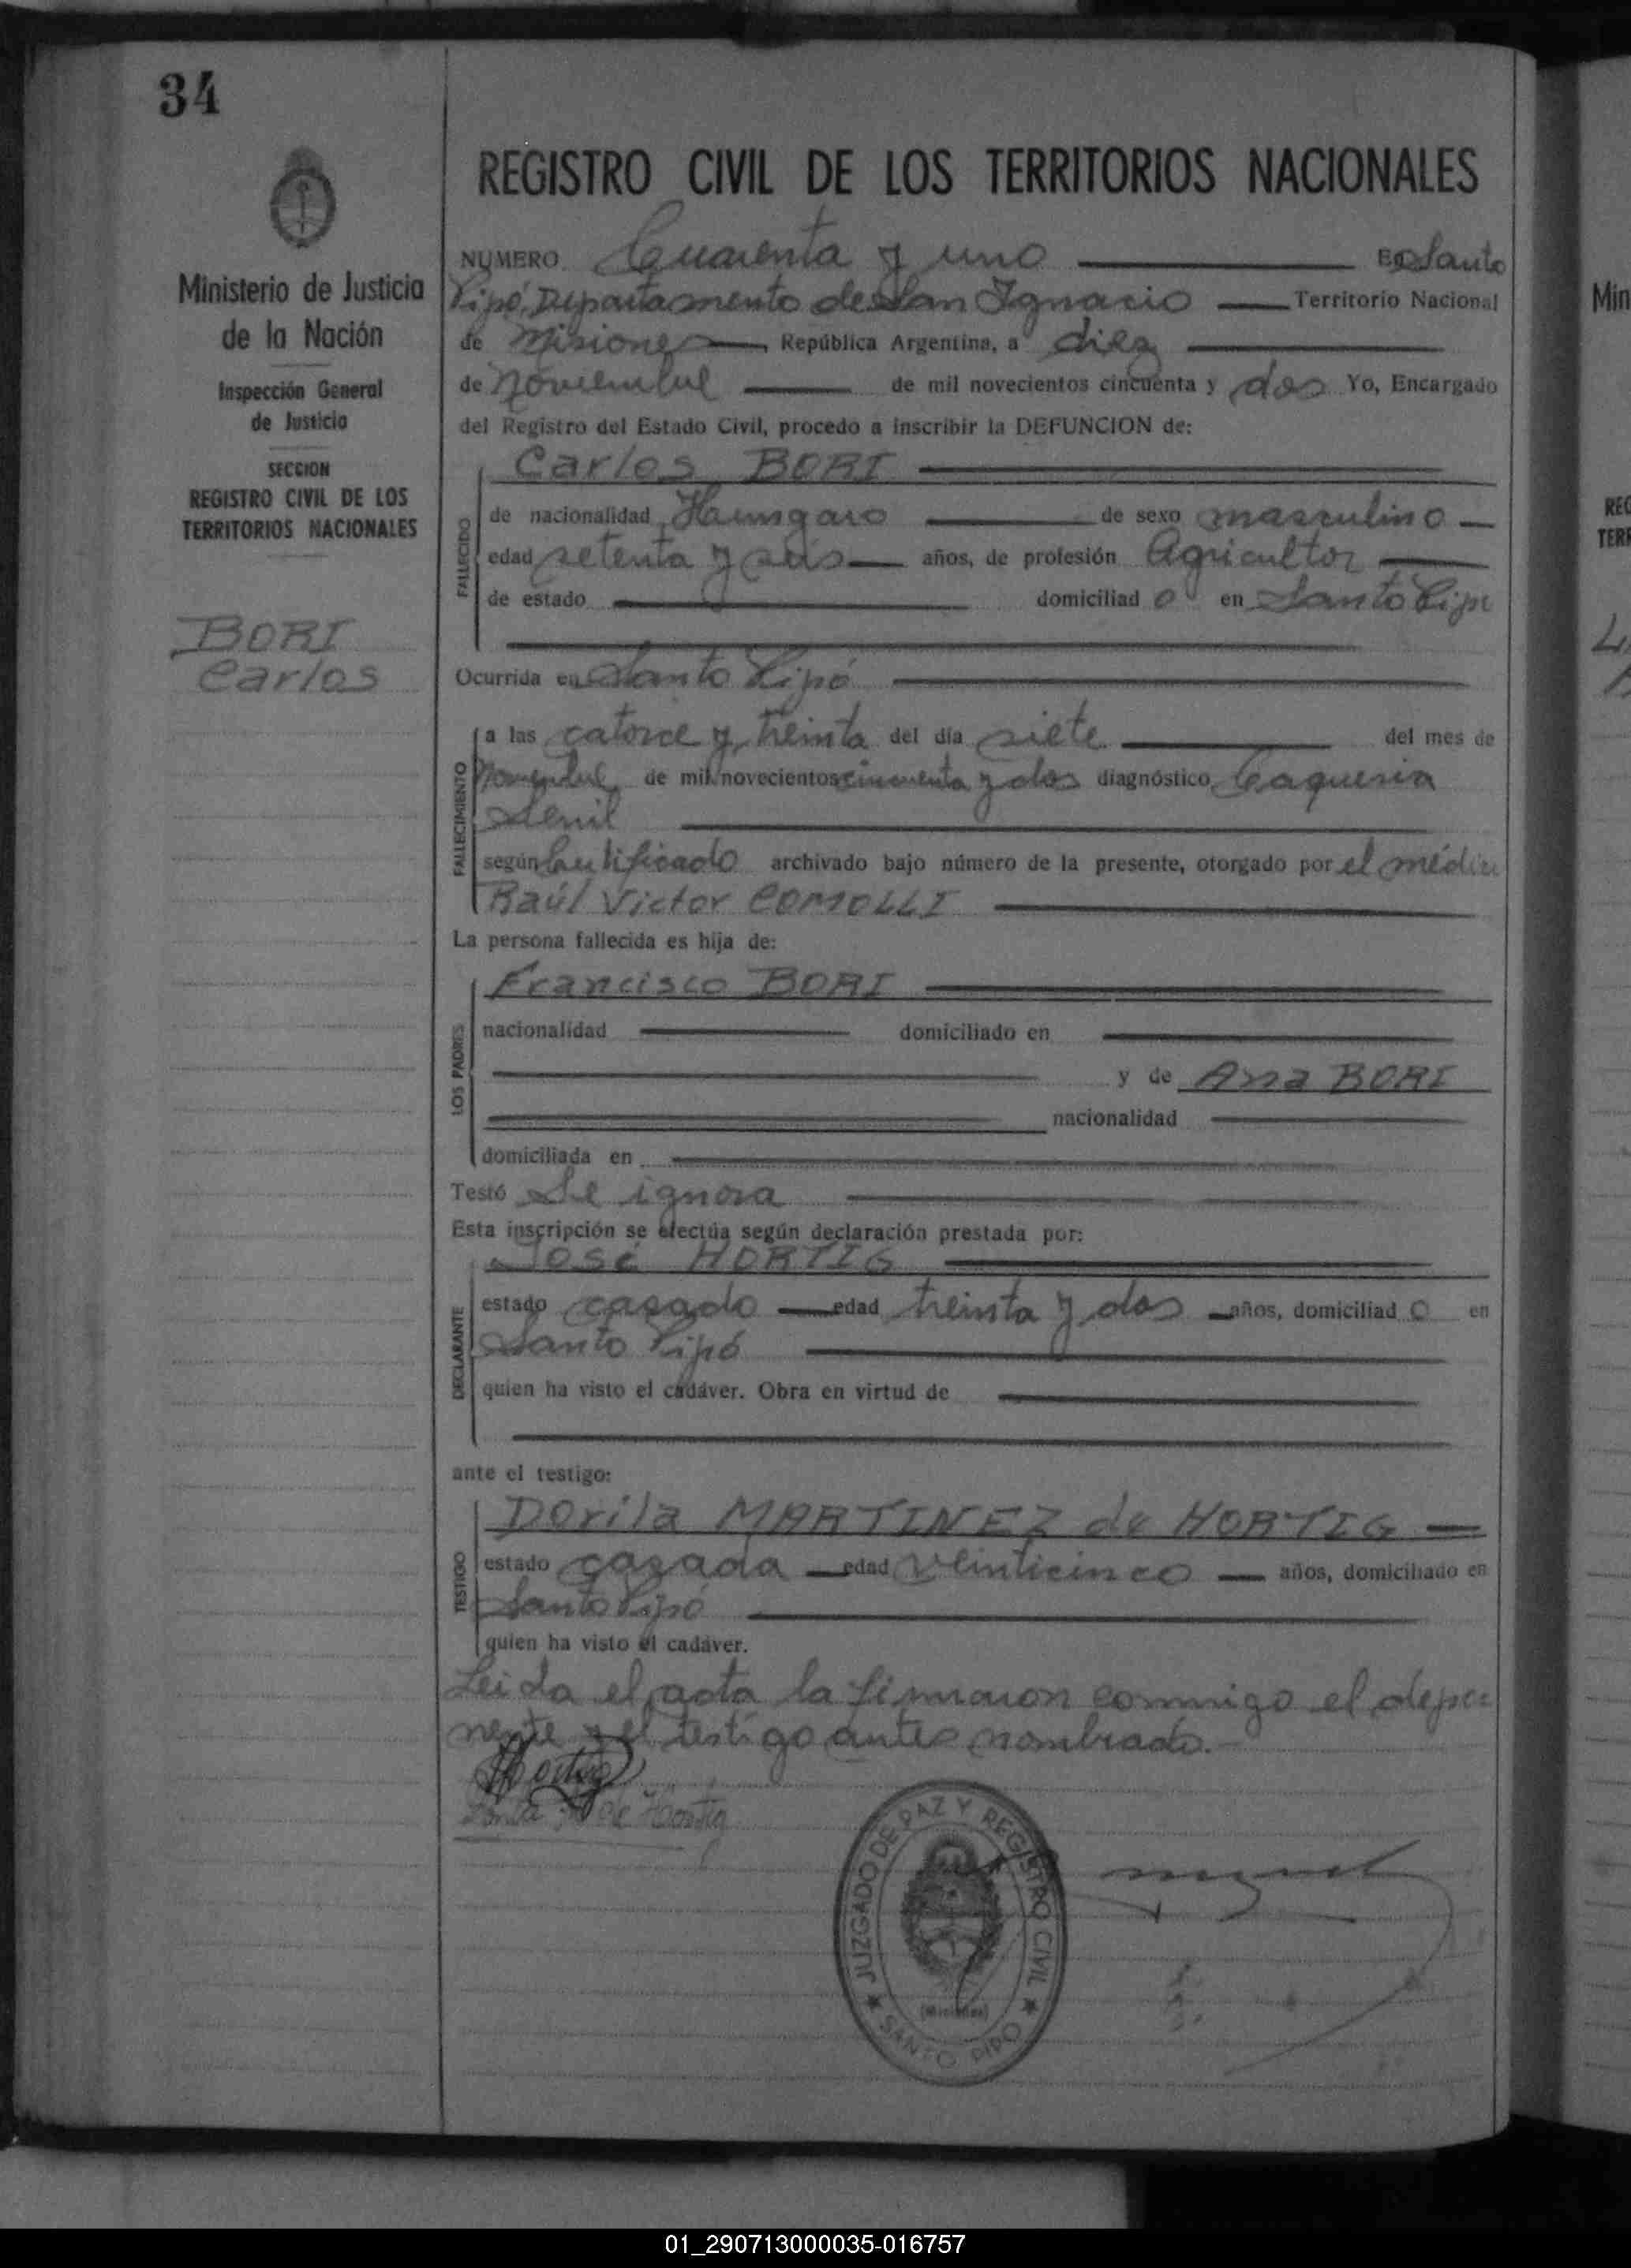 34
REGISTRO CIVIL DE LOS TERRITORIOS NACIONALES
Ministerio de Justicia
de la Nación
Inspección General
de Justicia
SECCION
REGISTRO CIVIL DE LOS
TERRITORIOS NACIONALES
BORI
Carlos
NUMERO Cuarenta y uno En Santo
Pipó, Departamento de San Ignacio Territorio Nacional
de Misiones, República Argentina, a diez
de noviembre de mil novecientos cincuenta y dos Yo, Encargado
del Registro del Estado Civil, procedo a inscribir la DEFUNCION de:
Carlos BORI
FALLECIDO
de nacionalidad Húngaro de sexo masculino
edad setenta y seis años, de profesión Agricultor
de estado domiciliado en Santo Pipó
Ocurrida en Santo Pipó
FALLECIMIENTO
a las catorce y treinta del día siete del mes de
Noviembre de mil novecientos cincuenta y dos diagnóstico Caquesia
Senil
según Certificado archivado bajo número de la presente, otorgado por el médico
Raúl Victor COMOLLI
La persona fallecida es hija de:
LOS PADRES
Francisco BORI
nacionalidad domiciliado en
y de Ana BORI
nacionalidad
domiciliada en
Testó Se ignora
Esta inscripción se efectúa según declaración prestada por:
DECLARANTE
José HORTIG
estado casado edad treinta y dos años, domiciliado en
Santo Pipó
quien ha visto el cadáver. Obra en virtud de
ante el testigo:
TESTIGO
Dorila MARTINEZ de HORTIG
estado casada edad veinticinco años, domiciliado en
Santo Pipó
quien ha visto el cadáver.
Leida el acta la firmaron conmigo el depo
nente y el testigo antes nombrado.-
Hortig
de Hortig
JUZGADO DE PAZ Y REGISTRO CIVIL
(Misiones)
SANTO PIPO
Min
REG
TERR
01_290713000035-016757